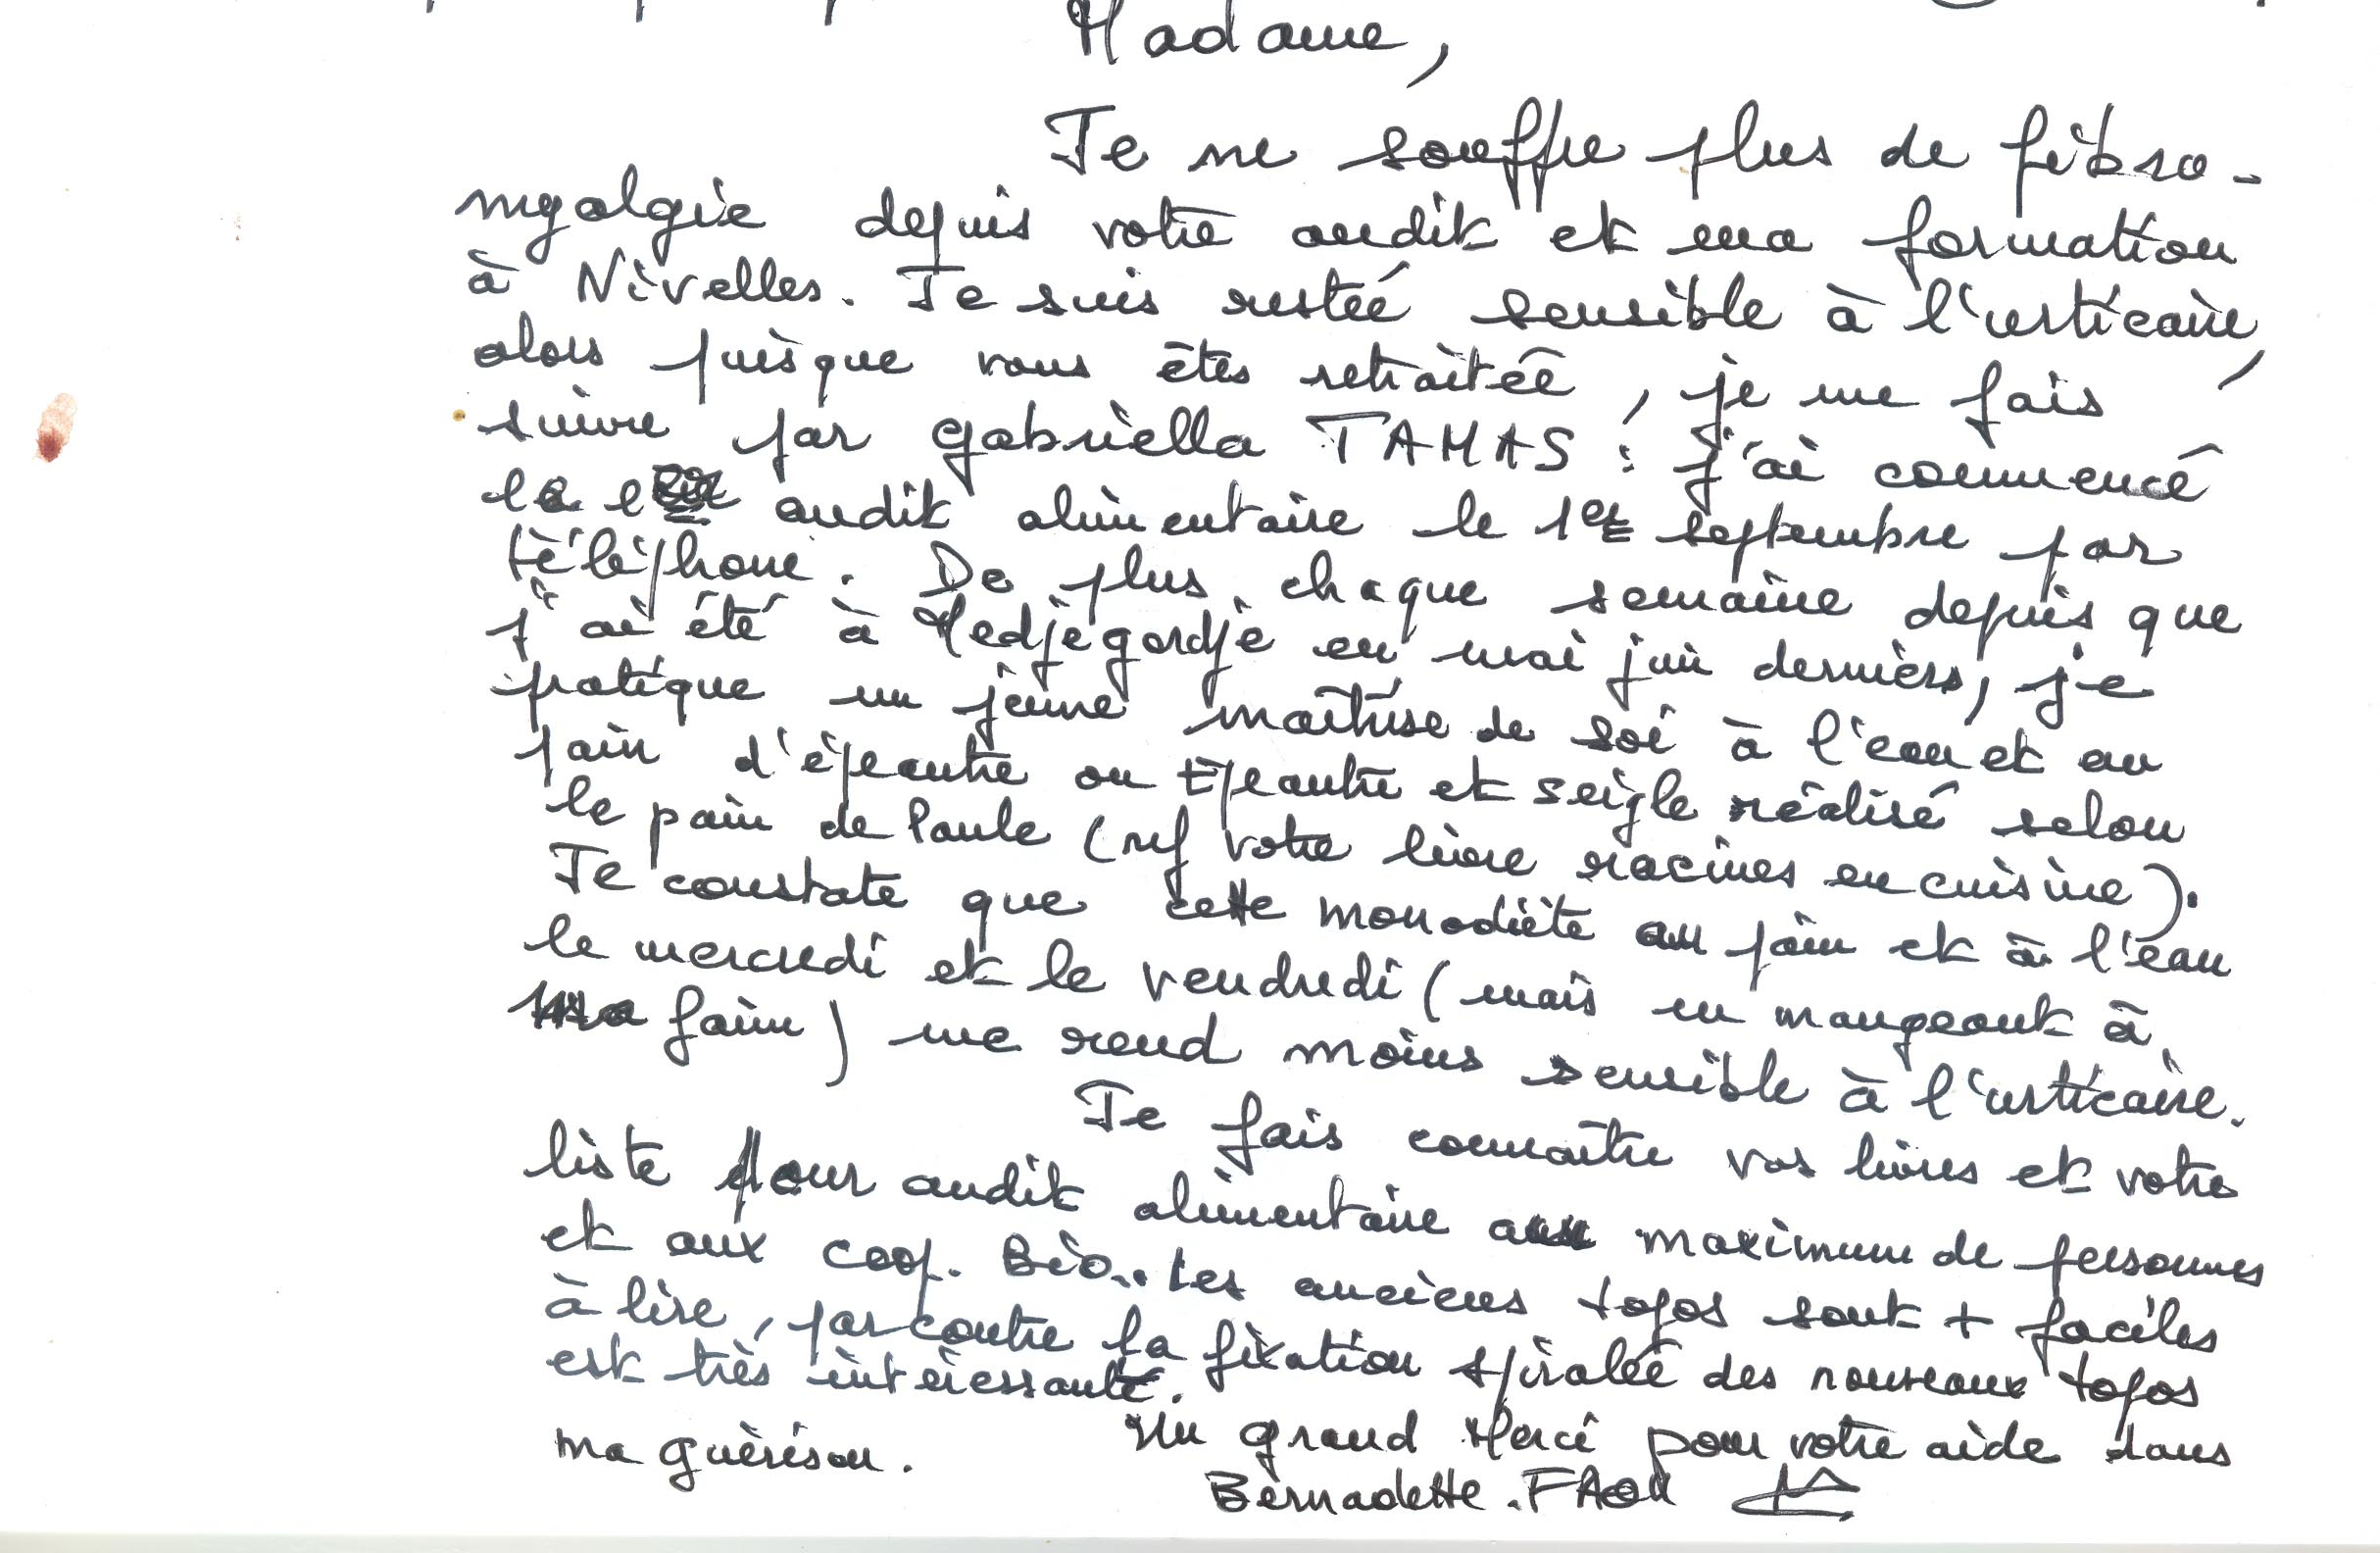 Madame,
Je ne souffre plus de fibro-
myalgie depuis votre audit et ma formation
à Nivelles. Je suis restée sensible à l'urticaire,
alors puisque vous êtes retraitée, je me fais
suivre par Gabriella TAMAS : J'ai commencé
audit alimentaire le 1er septembre par
téléphone. De plus, chaque semaine depuis que
j'ai été à Medjegordje en mai juin derniers, je
pratique un jeûne maîtrise de soi à l'eau et au
pain d'épeautre ou Epeautre et seigle réalisé selon
le pain de Paule (ref votre livre racines en cuisine).
Je constate que cette monodiète au pain et à l'eau
le mercredi et le vendredi (mais en mangeant à
ma faim) me rend moins sensible à l'urticaire.
Je fais connaître vos livres et votre
liste pour audit alimentaire au maximum de personnes
et aux coop. Bio.. Les anciens topos sont + faciles
à lire, par contre la fixation spiralée des nouveaux topos
est très intéressante.
Un grand Merci pour votre aide dans
ma guérison.
Bernadette.